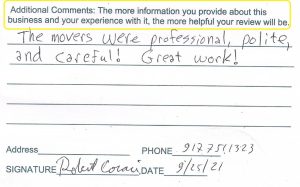 Additional Comments: The more information you provide about this
business and your experience with it, the more helpful your review will be.
The movers were professional, polite,
and careful! Great work!
Address PHONE 917 7511323
SIGNATURE Robert DATE 9/25/21